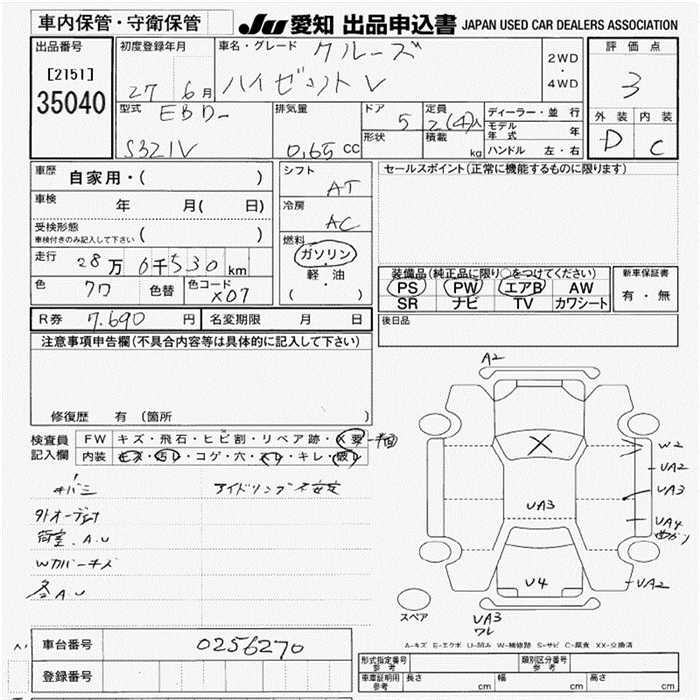 車内保管・守衛保管
JU 愛知 出品申込書 JAPAN USED CAR DEALERS ASSOCIATION
出品番号
[2151]
35040
初度登録年月
27 6月
車名・グレード クルーズ
ハイゼット V
2WD
・
4WD
評価点
3
外装 内装
D C
型式 EBD-
S321V
排気量
0.65 cc
ドア 5
形状
定員 2(4)人
積載 kg
ディーラー・並行
モデル年式 年
ハンドル 左・右
車歴 自家用・( )
車検 年 月( 日)
受検形態
車検付きのみ記入して下さい ( )
走行 28万 6千530 km
色 クロ 色替 色コード X07
シフト AT
冷房 AC
燃料
ガソリン
・
軽・油
( )
セールスポイント(正常に機能するものに限ります)
装備品(純正品に限り○をつけてください)
PS PW エアB AW
SR ナビ TV カワシート
新車保証書
有・無
R券 7,690 円 名変期限 月 日
後日品
注意事項申告欄(不具合内容等は具体的に記入して下さい)
修復歴 有(箇所 )
検査員
記入欄
FW キズ・飛石・ヒビ割・リペア跡・X要
内装 キズ・汚レ・コゲ・穴・スレ・キレ・破レ
キバミ アイドリング不安定
外オーディオ
荷室.AU
Wカバーキズ
各AU
A2
X
W2
UA2
UA3
UA3
UA4
U4
UA2
UA3
ワレ
スペア
A-キズ E-エクボ U-凹み W-補修跡 S-サビ C-腐食 XX-交換済
車台番号 0256270
登録番号
形式指定番号 参考
類別区分番号 参考
車庫証明用 参考 長さ cm 幅 cm 高さ cm